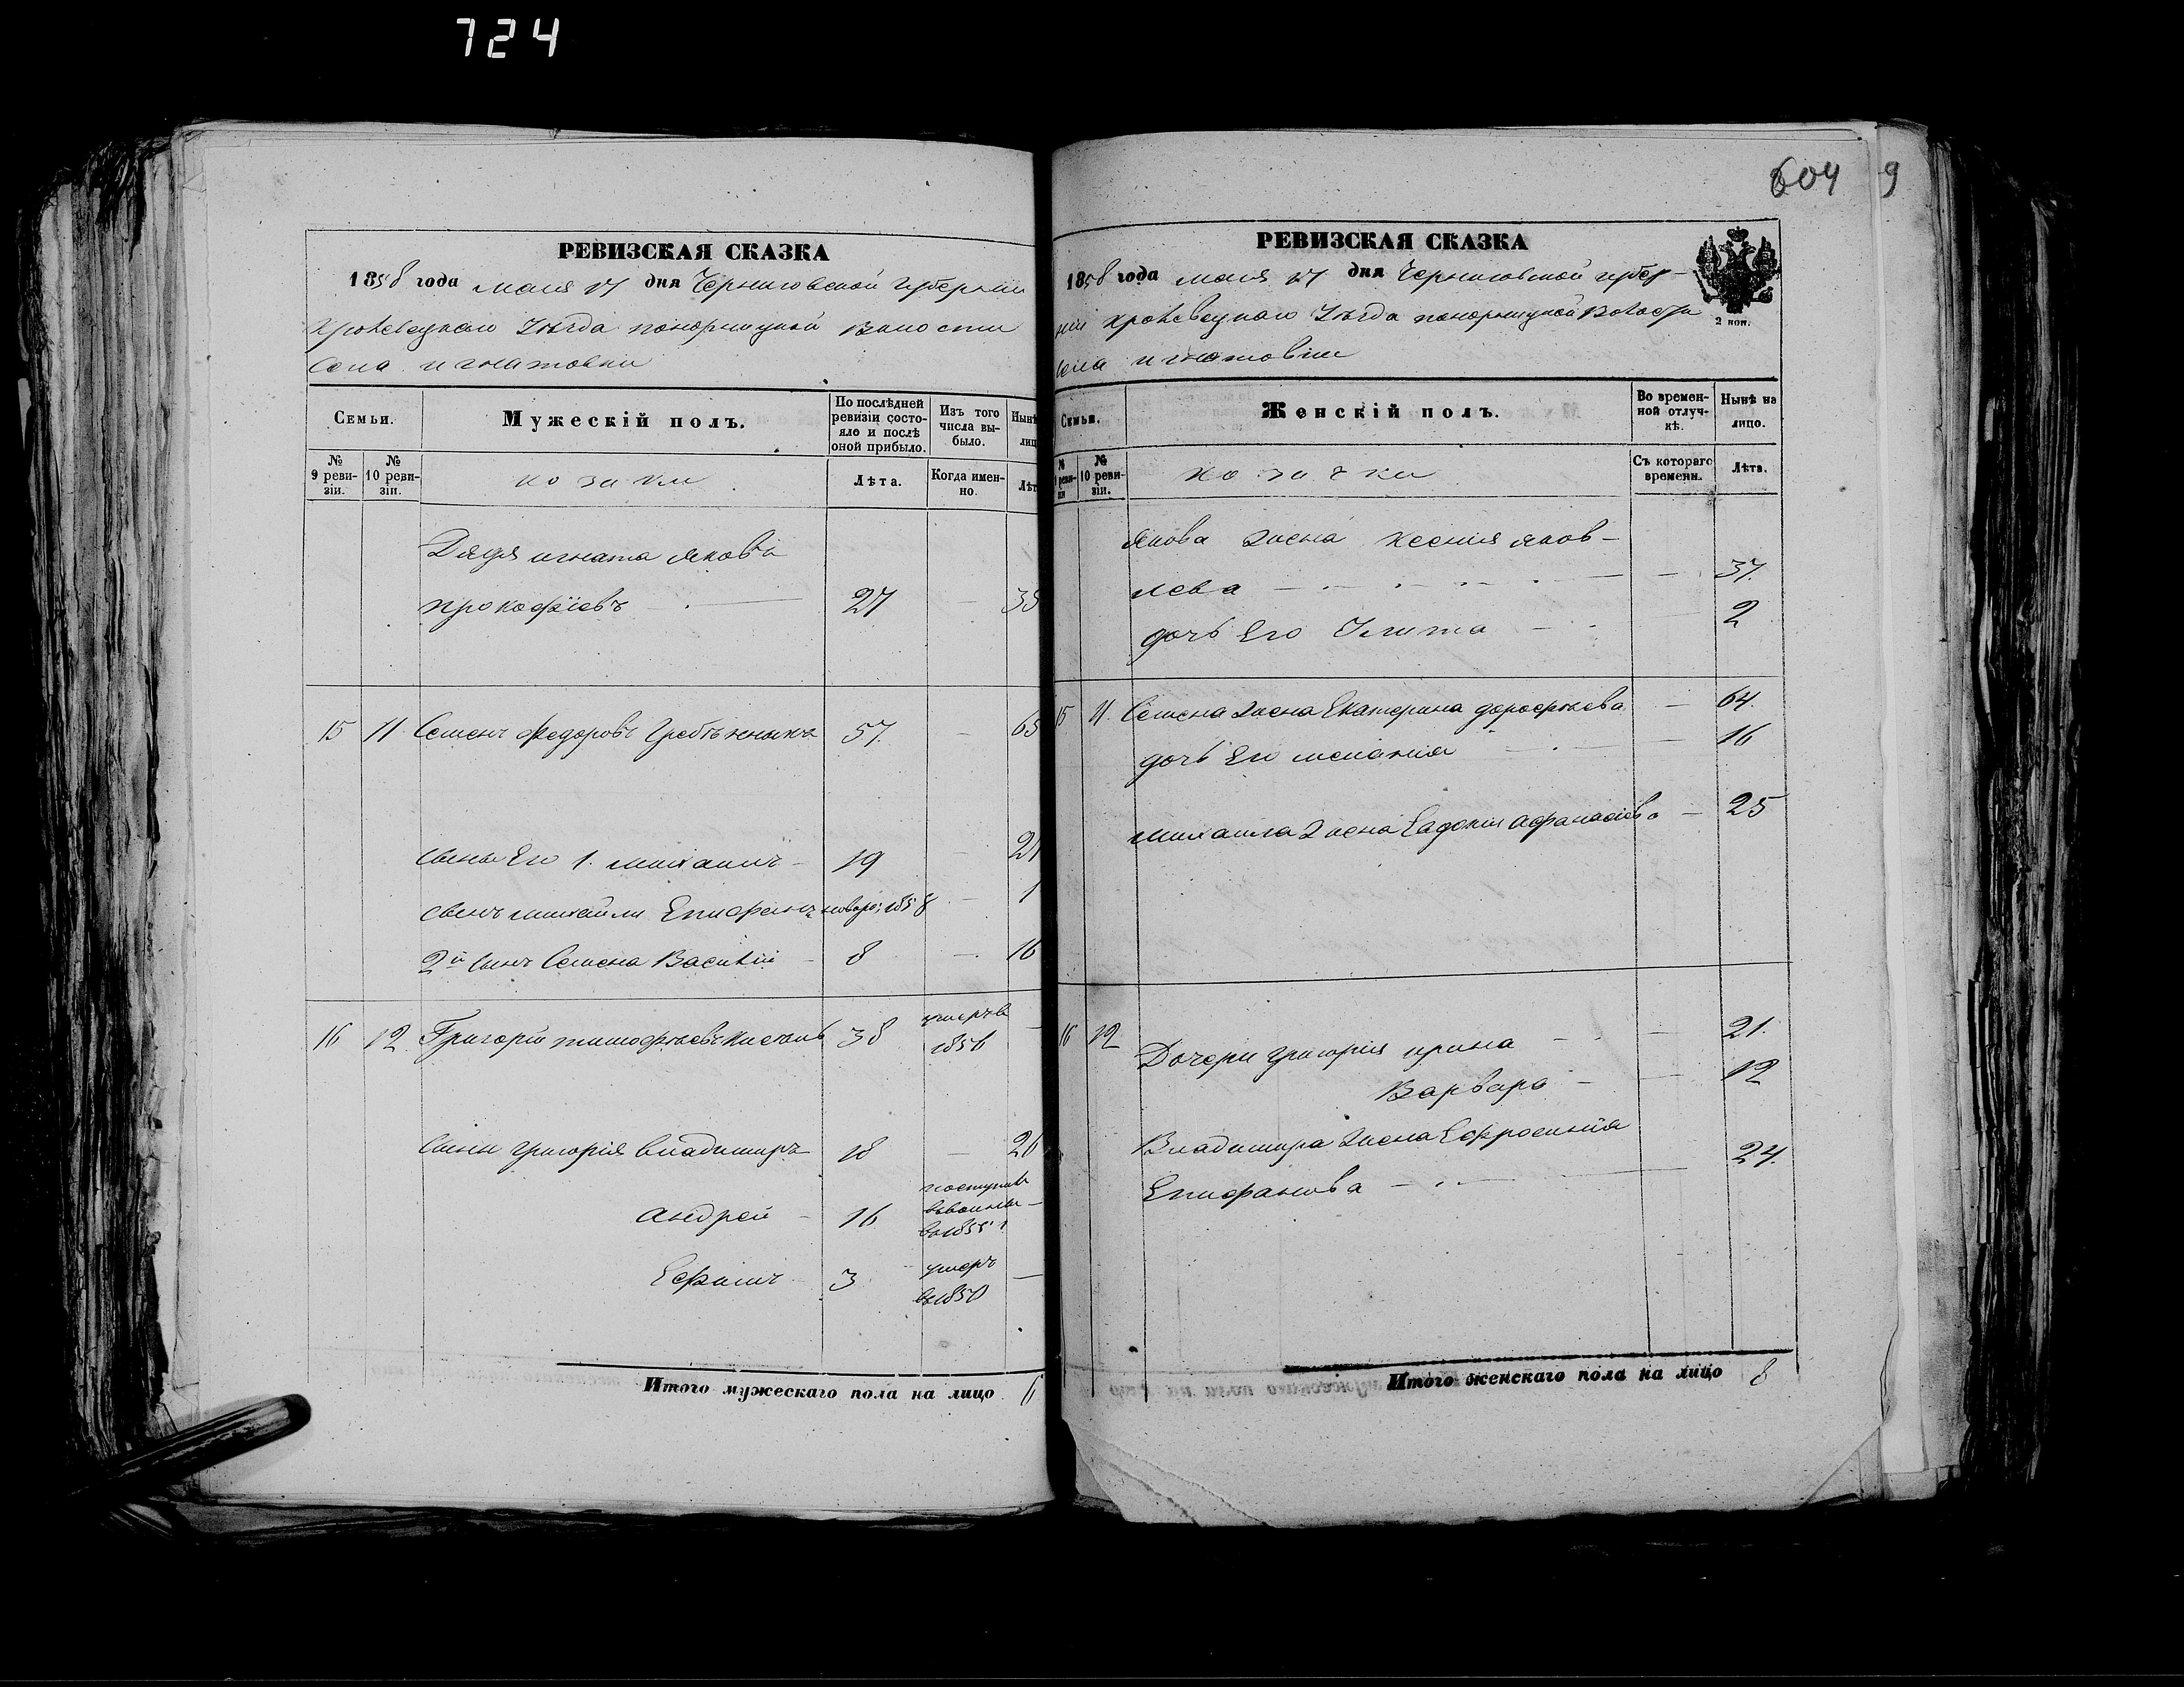 724
604 9
РЕВИЗСКАЯ СКАЗКА
1858 года мая 17 дня Черниговской губернии
Кролевецкаго Уѣзда понорницкой волости
Села игнатовки
Семьи.
Мужескій полъ.
По послѣдней ревизіи состояло и послѣ оной прибыло.
Изъ того числа выбыло.
Нынѣ лиц
№ 9 ревизіи.
№ 10 ревизіи.
козаки
Лѣта.
Когда именно.
Лѣт
Дядя игната Яковъ
прокофіевъ — 27 35
15 11 Семенъ Федоровъ 57. — 65
сыны Его 1. михаилъ — 19 — 27
сынъ михайли Епифанъ 1858 — 1
2й сынъ Семена Василий — 8 — 16
16 12 Григорій тимофѣевъ 38 умеръ в 1856 —
сыны григорія владимиръ 18 — 26
андрей — 16
Ефимъ 3 умеръ —
Итого мужескаго пола на лицо 6
РЕВИЗСКАЯ СКАЗКА
1858 года мая 17 дня Черниговской губер-
ніи Кролевецкаго Уѣзда понорницкой волости
2 коп.
села игнатовки
Семьи.
Женскій полъ.
Во временной отлучкѣ.
Нынѣ на лицо.
№ 10 ревизіи.
козачки
Съ котораго времени.
Лѣта.
Якова жена Ксения яков-
лева — — 37.
дочь Его Улита — — 2
15 11. Семена жена Екатерина дорофѣева — 64.
дочь Его мелания — — 16
михаила жена Евдокия афанасіева — 25
16 12 Дочери григорія ирина — — 21.
Варвара — — 12
Владимира жена Ефросинія
Епифанова — — 24.
Итого женскаго пола на лицо 8